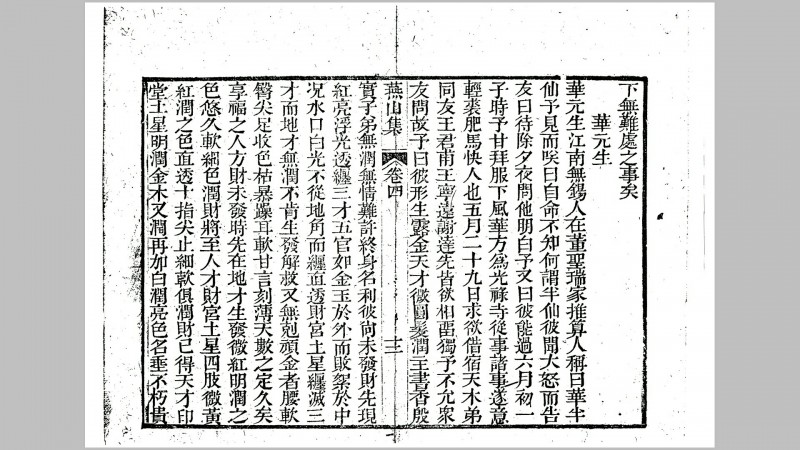 下無難處之事矣
華元生
華元生江南無錫人在董聖瑞家推算人稱曰華半
仙予見而咲曰自命不知何謂半仙彼聞大怒而告
友曰待除夕夜問他明白予又曰彼能過六月初一
子時予甘拜服下風華方為光祿寺從事諸事遂意
輕裘肥馬快人也五月二十九日求欲借宿天木弟
同友王君甫王寧遠謝達先皆欲相留獨予不允衆
友問故予曰彼形生露金天才微圓髮潤主書香殷
實子弟無潤無情難許終身名利彼尚未發財先現
紅亮浮光透纏三才五官如金玉於外而敗絮於中
况水口白光不從地角而纏直透財宮土星纏滅三
才而地才無潤不肯生發解救又無剋頑金者腰軟
臀尖足收色枯暴躁耳軟甘言刻薄天數之定久矣
享福之人方財未發時先在地才生發微紅明潤之
色悠久軟細色潤財將至人才財宮土星四肢微黃
紅潤之色直透十指尖止細軟俱潤財已得天才印
堂土星明潤金木又潤再加白潤亮色名垂不朽貴
燕山集
卷四